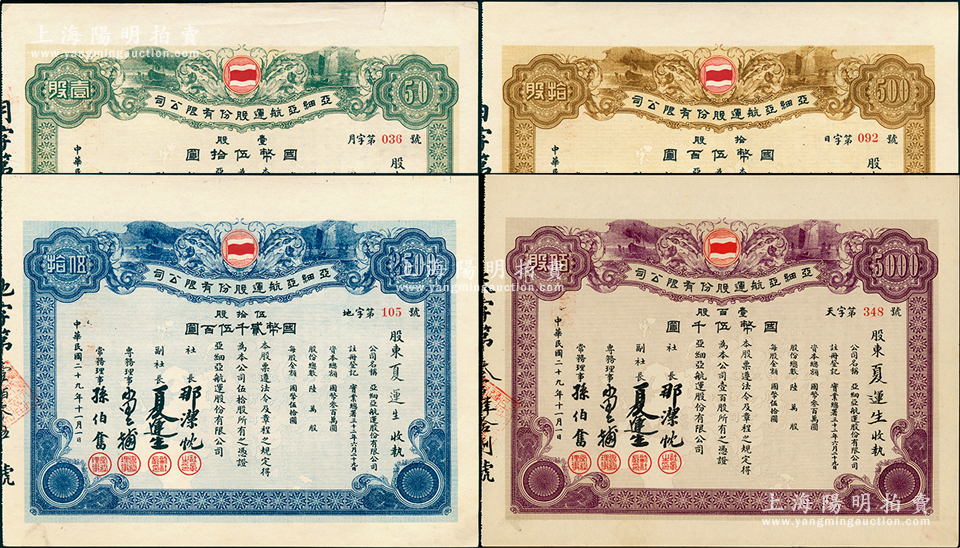 上海陽明拍賣
www.yangmingauction.com
股壹
50
司公限有份股運航亞細亞
壹股
月字第 036 號
圓拾伍幣國
中華民
股
股拾
500
司公限有份股運航亞細亞
拾股
日字第 092 號
圓百伍幣國
中華民
股
司公限有份股運航亞細亞
伍拾股
地字第 105 號
圓百伍千貳幣國
股東 夏運生 收執
公司名稱 亞細亞航運股份有限公司
資本總額 國幣零百萬圓
股份總數 陸萬股
每股金額 國幣伍拾圓
本股票遵法令及章程之規定得
為本公司伍拾股所有之憑證
亞細亞航運股份有限公司
社長
副社長
專務理事
常務理事 孫伯奮
中華民國二十九年十一月一日
股佰
5000
司公限有份股運航亞細亞
壹百股
天字第 348 號
圓千伍幣國
股東 夏運生 收執
公司名稱 亞細亞航運股份有限公司
資本總額 國幣零百萬圓
股份總數 陸萬股
每股金額 國幣伍拾圓
本股票遵法令及章程之規定得
為本公司壹百股所有之憑證
亞細亞航運股份有限公司
社長
副社長
專務理事
常務理事 孫伯奮
中華民國二十九年十一月一日
上海陽明拍賣
www.yangmingauction.com